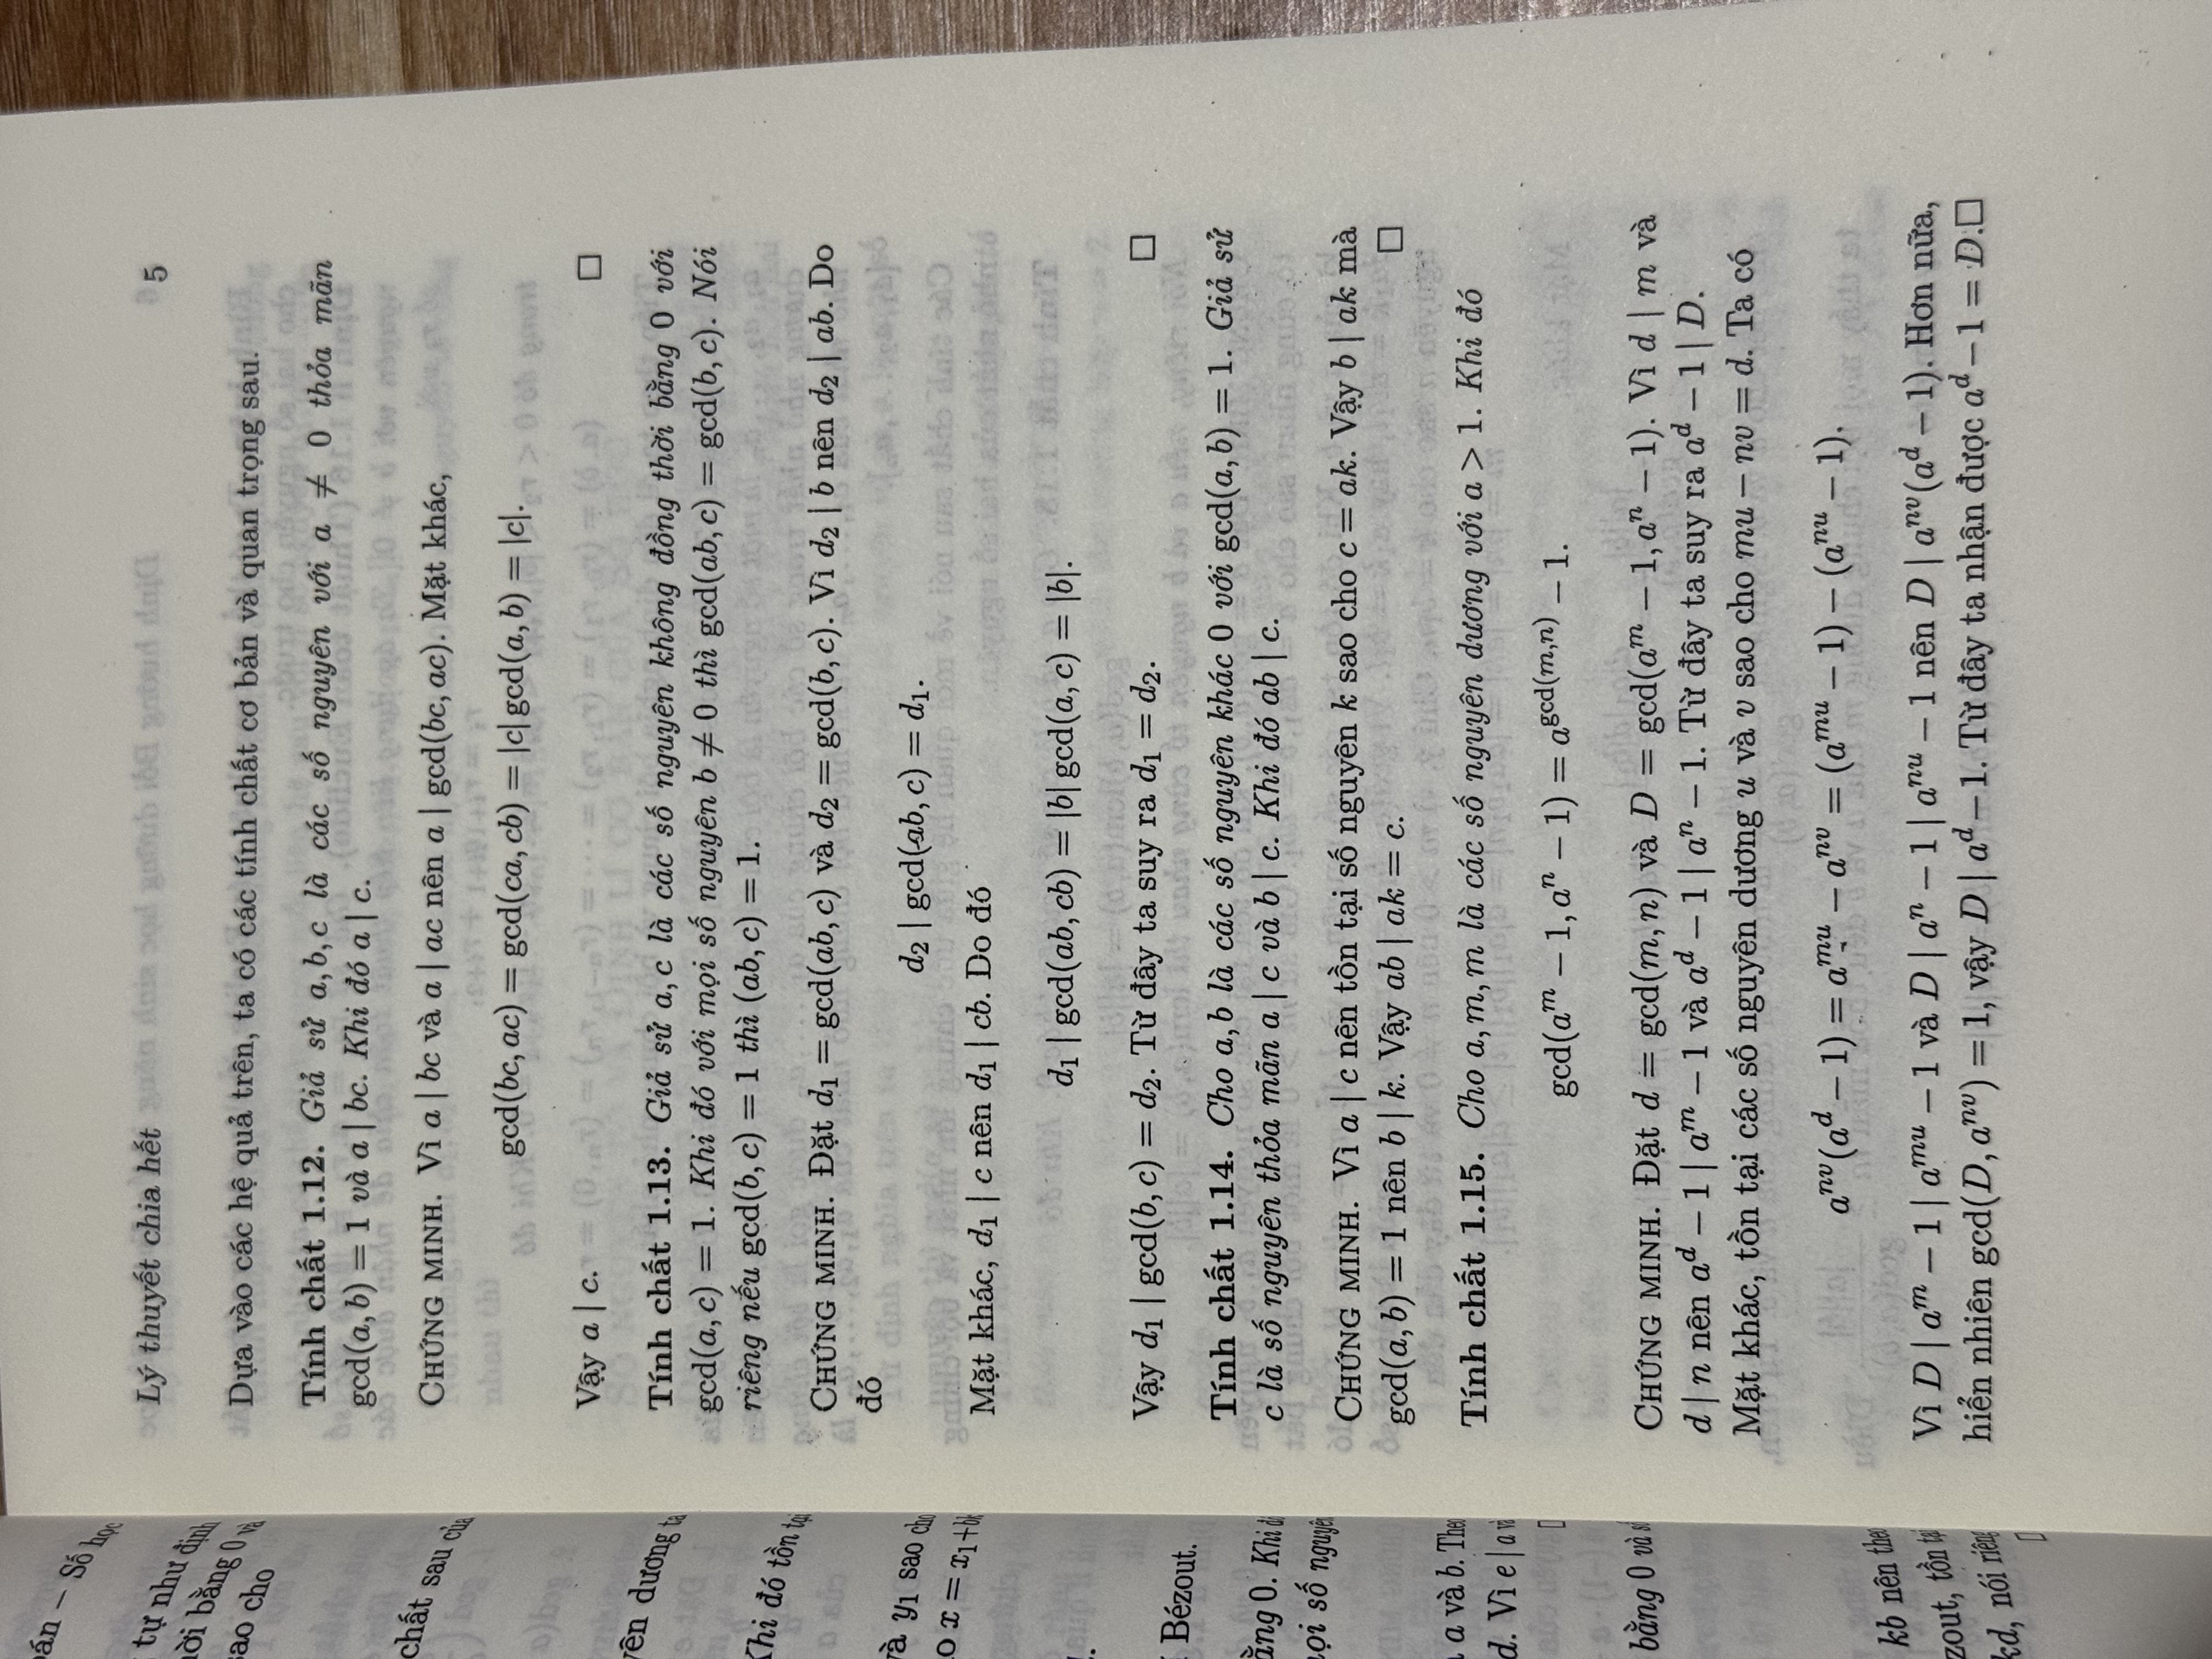 Lý thuyết chia hết 5
Dựa vào các hệ quả trên, ta có các tính chất cơ bản và quan trọng sau.
Tính chất 1.12. Giả sử a, b, c là các số nguyên với a ≠ 0 thỏa mãn
gcd(a, b) = 1 và a | bc. Khi đó a | c.
CHỨNG MINH. Vì a | bc và a | ac nên a | gcd(bc, ac). Mặt khác,
gcd(bc, ac) = gcd(ca, cb) = |c| gcd(a, b) = |c|.
Vậy a | c. □
Tính chất 1.13. Giả sử a, c là các số nguyên không đồng thời bằng 0 với
gcd(a, c) = 1. Khi đó với mọi số nguyên b ≠ 0 thì gcd(ab, c) = gcd(b, c). Nói
riêng nếu gcd(b, c) = 1 thì (ab, c) = 1.
CHỨNG MINH. Đặt d₁ = gcd(ab, c) và d₂ = gcd(b, c). Vì d₂ | b nên d₂ | ab. Do
đó
d₂ | gcd(ab, c) = d₁.
Mặt khác, d₁ | c nên d₁ | cb. Do đó
d₁ | gcd(ab, cb) = |b| gcd(a, c) = |b|.
Vậy d₁ | gcd(b, c) = d₂. Từ đây ta suy ra d₁ = d₂. □
Tính chất 1.14. Cho a, b là các số nguyên khác 0 với gcd(a, b) = 1. Giả sử
c là số nguyên thỏa mãn a | c và b | c. Khi đó ab | c.
CHỨNG MINH. Vì a | c nên tồn tại số nguyên k sao cho c = ak. Vậy b | ak mà
gcd(a, b) = 1 nên b | k. Vậy ab | ak = c. □
Tính chất 1.15. Cho a, m, m là các số nguyên dương với a > 1. Khi đó
gcd(a^m − 1, a^n − 1) = a^{gcd(m,n)} − 1.
CHỨNG MINH. Đặt d = gcd(m, n) và D = gcd(a^m − 1, a^n − 1). Vì d | m và
d | n nên a^d − 1 | a^m − 1 và a^d − 1 | a^n − 1. Từ đây ta suy ra a^d − 1 | D.
Mặt khác, tồn tại các số nguyên dương u và v sao cho mu − nv = d. Ta có
a^{nv}(a^d − 1) = a^{mu} − a^{nv} = (a^{mu} − 1) − (a^{nu} − 1).
Vì D | a^m − 1 | a^{mu} − 1 và D | a^n − 1 | a^{nu} − 1 nên D | a^{nv}(a^d − 1). Hơn nữa,
hiển nhiên gcd(D, a^{nv}) = 1, vậy D | a^d − 1. Từ đây ta nhận được a^d − 1 = D.□